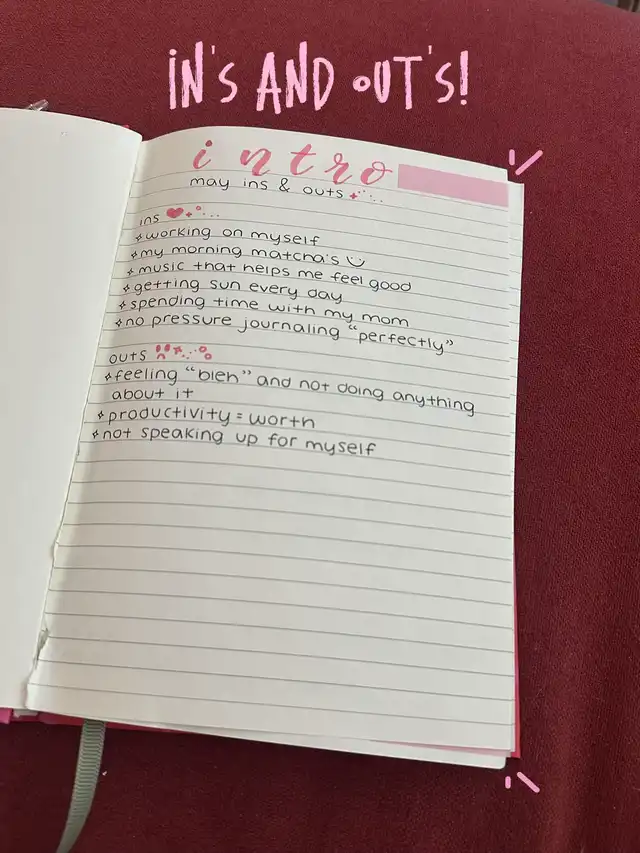 IN'S AND OUT'S!
intro
may ins & outs
ins
working on myself
my morning matcha's
music that helps me feel good
getting sun every day
spending time with my mom
no pressure journaling "perfectly"
outs
feeling "bleh" and not doing anything
about it
productivity = worth
not speaking up for myself